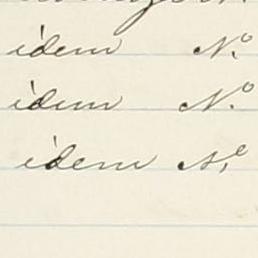 idem N.º
idem N.º
idem N.º